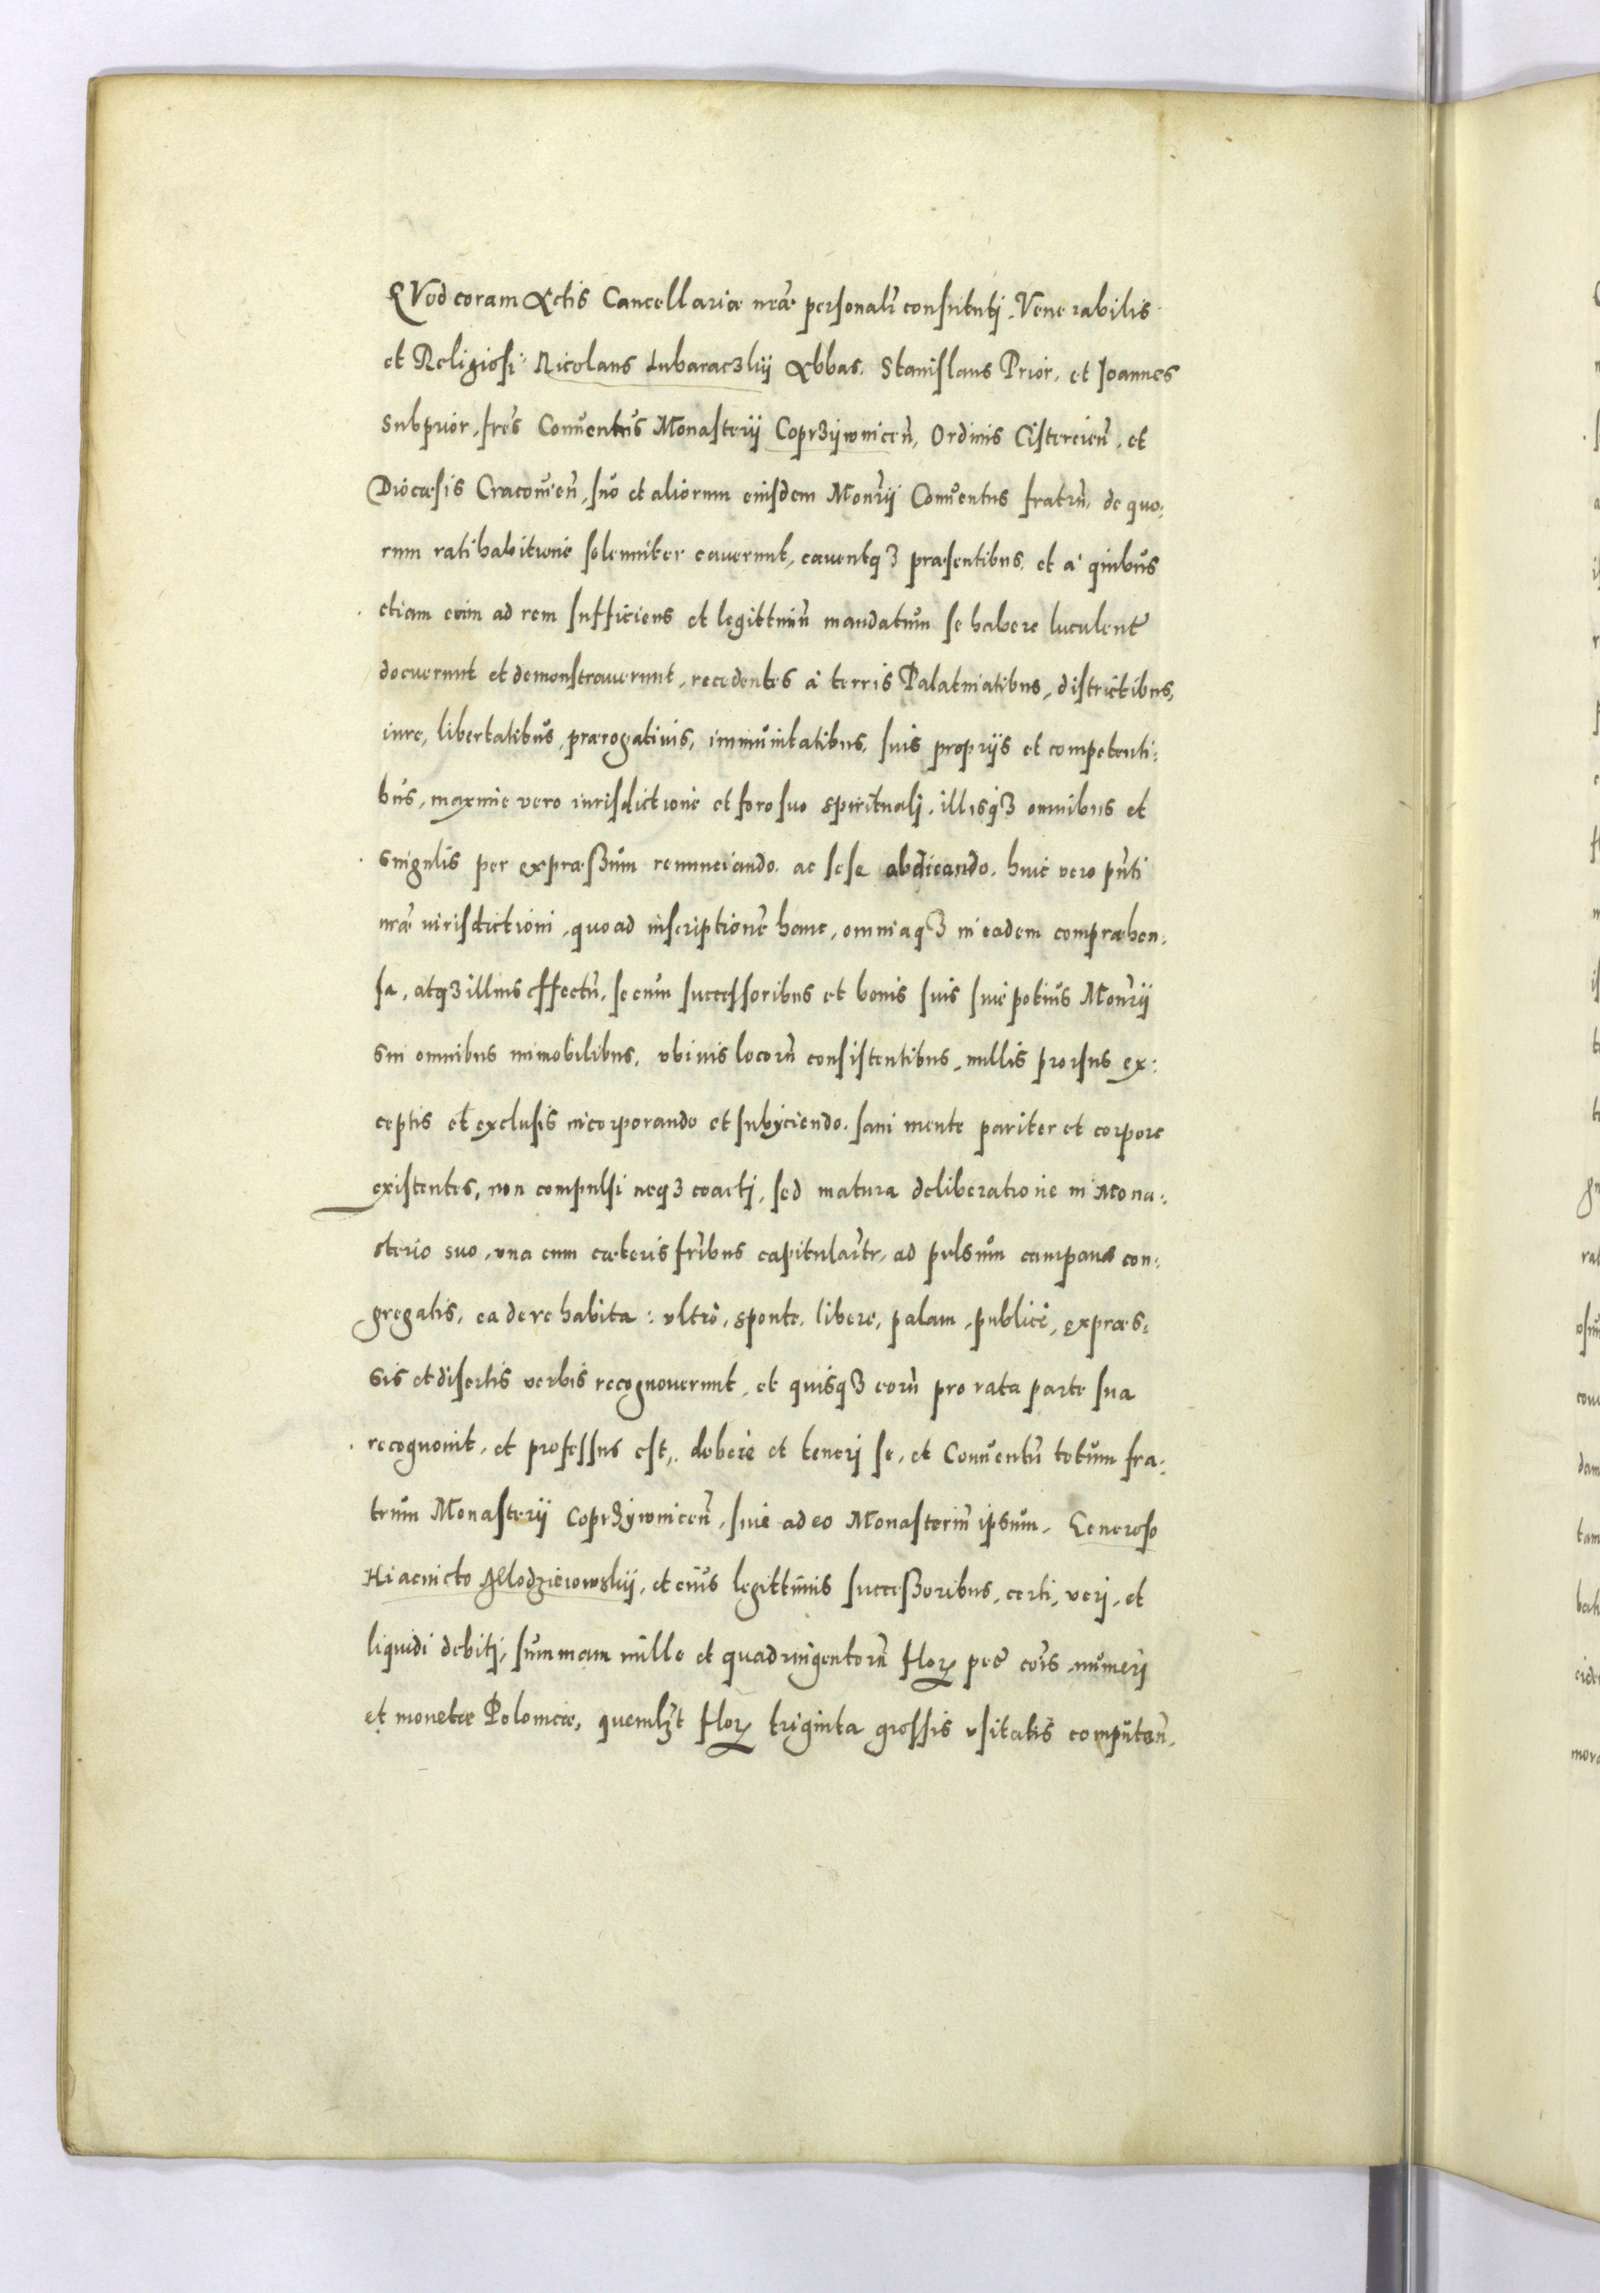 QVod coram Actis Cancellariæ nr̃æ personalr̃ constituti. Venerabilis
et Religiosi Nicolaus Lubaraczkij Abbas. Stanislaus Prior, et Joannes
Subprior, fr̃es Conventus Monasterij Coprzijwnicen̄, Ordinis Cistercien̄, et
Diocæsis Cracovien̄, suo et aliorum eiusdem Monrij̃ Conventus fratrũ, de quo:
rum ratihabitione solenniter caverunt, caventqʒ præsentibus, et à quibus
etiam eam ad rem sufficiens et legittimũ mandatum se habere luculentr̃
docuerunt et demonstraverunt, recedentes à terris Palatinatibus, districtibus,
iure, libertatibus, prærogativis, immunitatibus, suis proprijs et competenti:
bus, maxime vero iurisdictione et foro suo spirituali, illisqʒ omnibus et
singulis per expræßum renunciando, ac sese abdicando, huic vero pñti
nr̃æ iurisdictioni, quo ad inscriptionẽ hanc, omniaqʒ in eadem compræhen:
sa, atqʒ illius effectũ, se cum successoribus et bonis suis sive potius Monrij̃
sui omnibus immobilibus, ubivis locorũ consistentibus, nullis prorsus ex:
ceptis et exclusis incorporando et subijciendo, sani mente pariter et corpore
existentes, non compulsi neqʒ coacti, sed matura deliberatione in Mona:
sterio suo, una cum cæteris fr̃ibus capitularr̃, ad pulsum campanæ con:
gregatis, ea de re habita: ultro, sponte, libere, palam, publicè, expræs:
sis et disertis verbis recognoverunt, et quisqʒ eorũ pro rata parte sua
recognovit, et professus est, debere et teneri se, et Conventũ totum fra:
trum Monasterij Coprzijwnicen̄, sive adeo Monasteriũ ipsum, Generoso
Hiacincto Mlodzieiowskij, et eius legittimis successoribus, certi, veri, et
liquidi debiti, summam mille et quadringentorũ floꝝ pec̃ cõis numeri
et monetæ Polonicæ, quemlʒt floꝝ triginta grossis usitatis computan̄,